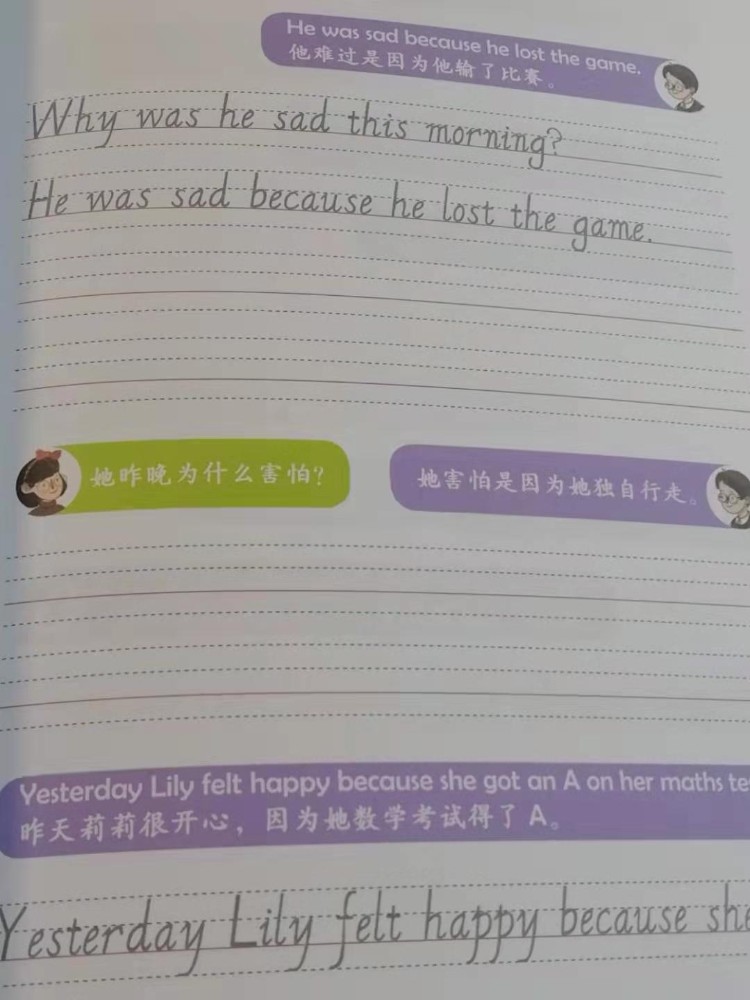 He was sad because he lost the game.
他难过是因为他输了比赛。
Why was he sad this morning?
He was sad because he lost the game.
她昨晚为什么害怕?
她害怕是因为她独自行走。
Yesterday Lily felt happy because she got an A on her maths te
昨天莉莉很开心，因为她数学考试得了 A。
Yesterday Lily felt happy because she